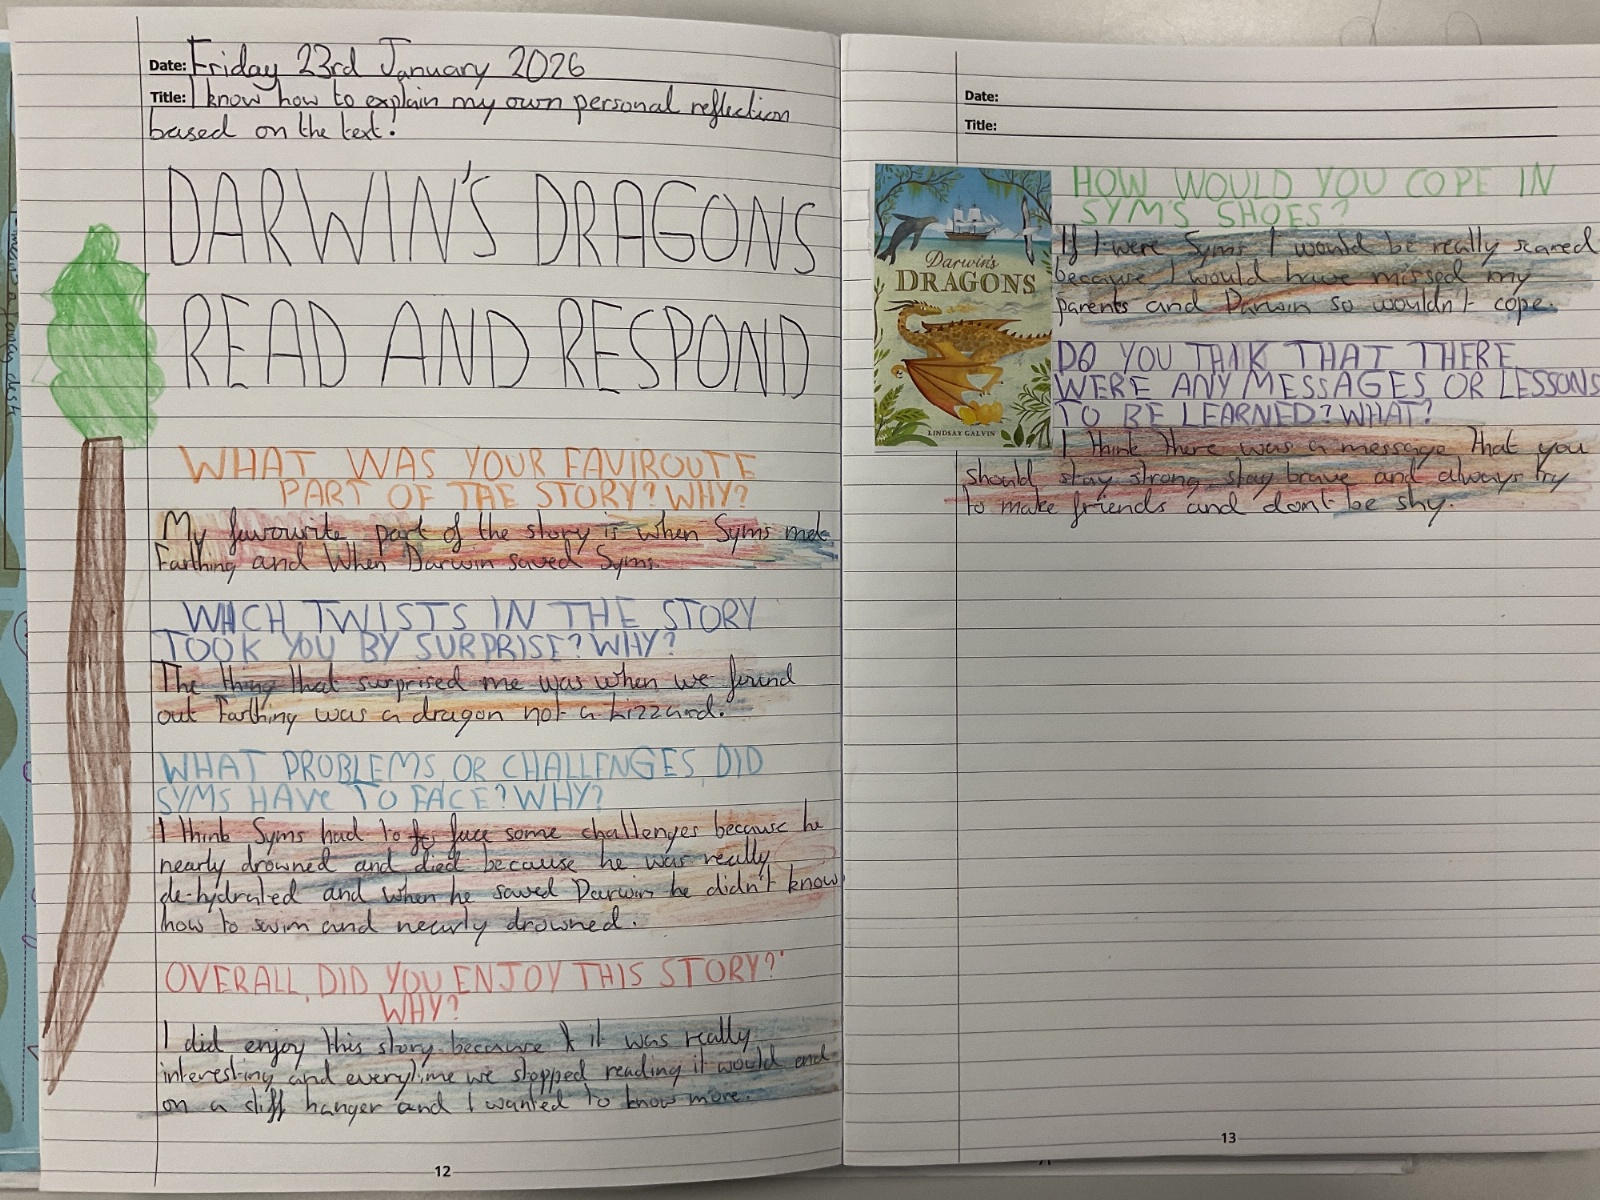 Date: Friday 23rd January 2026
Title: I know how to explain my own personal reflection
based on the text.
DARWIN'S DRAGONS
READ AND RESPOND
WHAT WAS YOUR FAVIROUTE
PART OF THE STORY? WHY?
My favourite part of the story is when Syms met
Farthing and When Darwin saved Syms.
WHICH TWISTS IN THE STORY
TOOK YOU BY SURPRISE? WHY?
The thing that surprised me was when we found
out Farthing was a dragon not a Lizzard.
WHAT PROBLEMS OR CHALLENGES DID
SYMS HAVE TO FACE? WHY?
I think Syms had to face some challenges because he
nearly drowned and died because he was really
de-hydrated and when he saved Darwin he didn't know
how to swim and nearly drowned.
OVERALL, DID YOU ENJOY THIS STORY?
WHY?
I did enjoy this story because it was really
interesting and everytime we stopped reading it would end
on a cliff hanger and I wanted to know more.
12
Date:
Title:
Darwin's
DRAGONS
LINDSAY GALVIN
HOW WOULD YOU COPE IN
SYM'S SHOES?
If I were Syms I would be really scared
because I would have missed my
parents and Darwin so wouldn't cope.
DO YOU THINK THAT THERE
WERE ANY MESSAGES OR LESSONS
TO BE LEARNED? WHAT?
I think there was a message that you
should stay strong, stay brave and always try
to make friends and don't be shy.
13